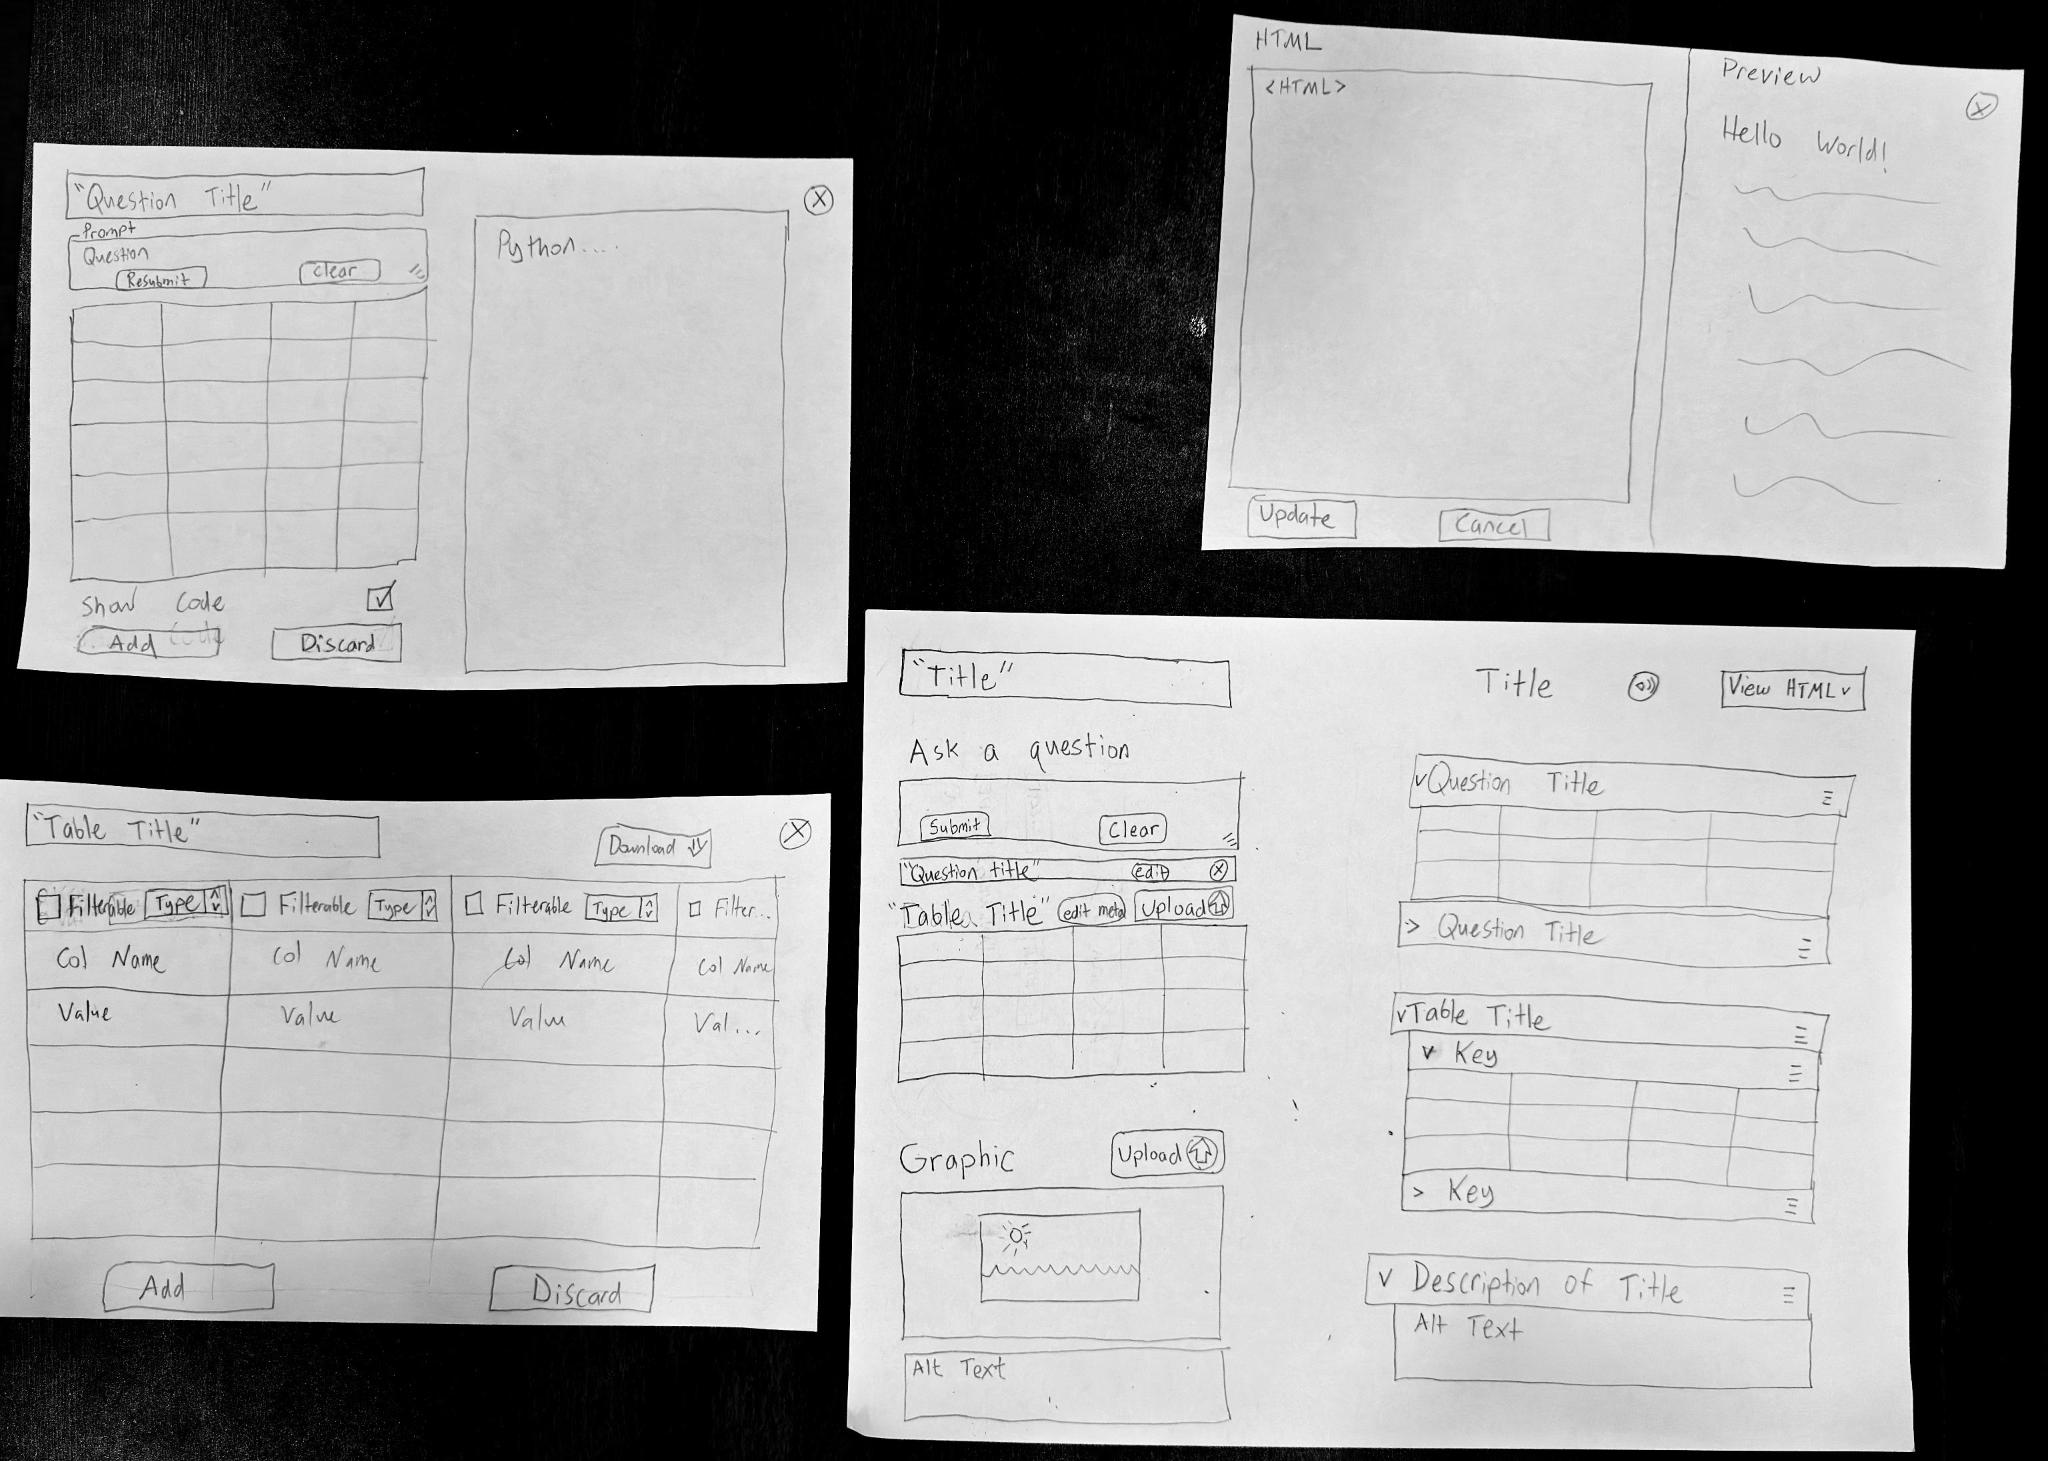 "Question Title"
X
Prompt
Question
Resubmit
Clear
Python....
Show Code
Add
Discard
HTML
<HTML>
Update
Cancel
Preview
X
Hello World!
"Table Title"
Download
X
Filterable Type
Filterable Type
Filterable Type
Filter...
Col Name
Col Name
Col Name
Col Name
Value
Value
Value
Val...
Add
Discard
"Title"
Ask a question
Submit
Clear
"Question title" edit X
"Table Title" edit meta Upload
Graphic
Upload
Alt Text
Title
View HTML v
v Question Title
> Question Title
v Table Title
v Key
> Key
v Description of Title
Alt Text